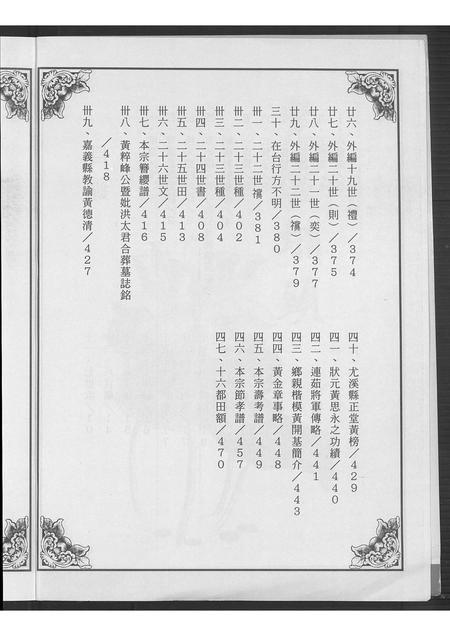 廿六、外編十九世（禮）／374
廿七、外編二十世（則）／375
廿八、外編二十一世（奕）／377
廿九、外編二十二世（禩）／379
三十、在台行方不明／380
卅一、二十二世禩／381
卅二、二十三世種／402
卅三、二十三世種／404
卅四、二十四世書／408
卅五、二十五世田／413
卅六、二十六世文／415
卅七、本宗簪纓譜／416
卅八、黃粹峰公暨妣洪太君合葬墓誌銘
／418
卅九、嘉義縣教諭黃德清／427
四十、尤溪縣正堂黃榜／429
四一、狀元黃思永之功績／440
四二、連茹將軍傳略／441
四三、鄉親楷模黃開基簡介／443
四四、黃金章事略／448
四五、本宗壽考譜／449
四六、本宗節孝譜／457
四七、十六都田額／470